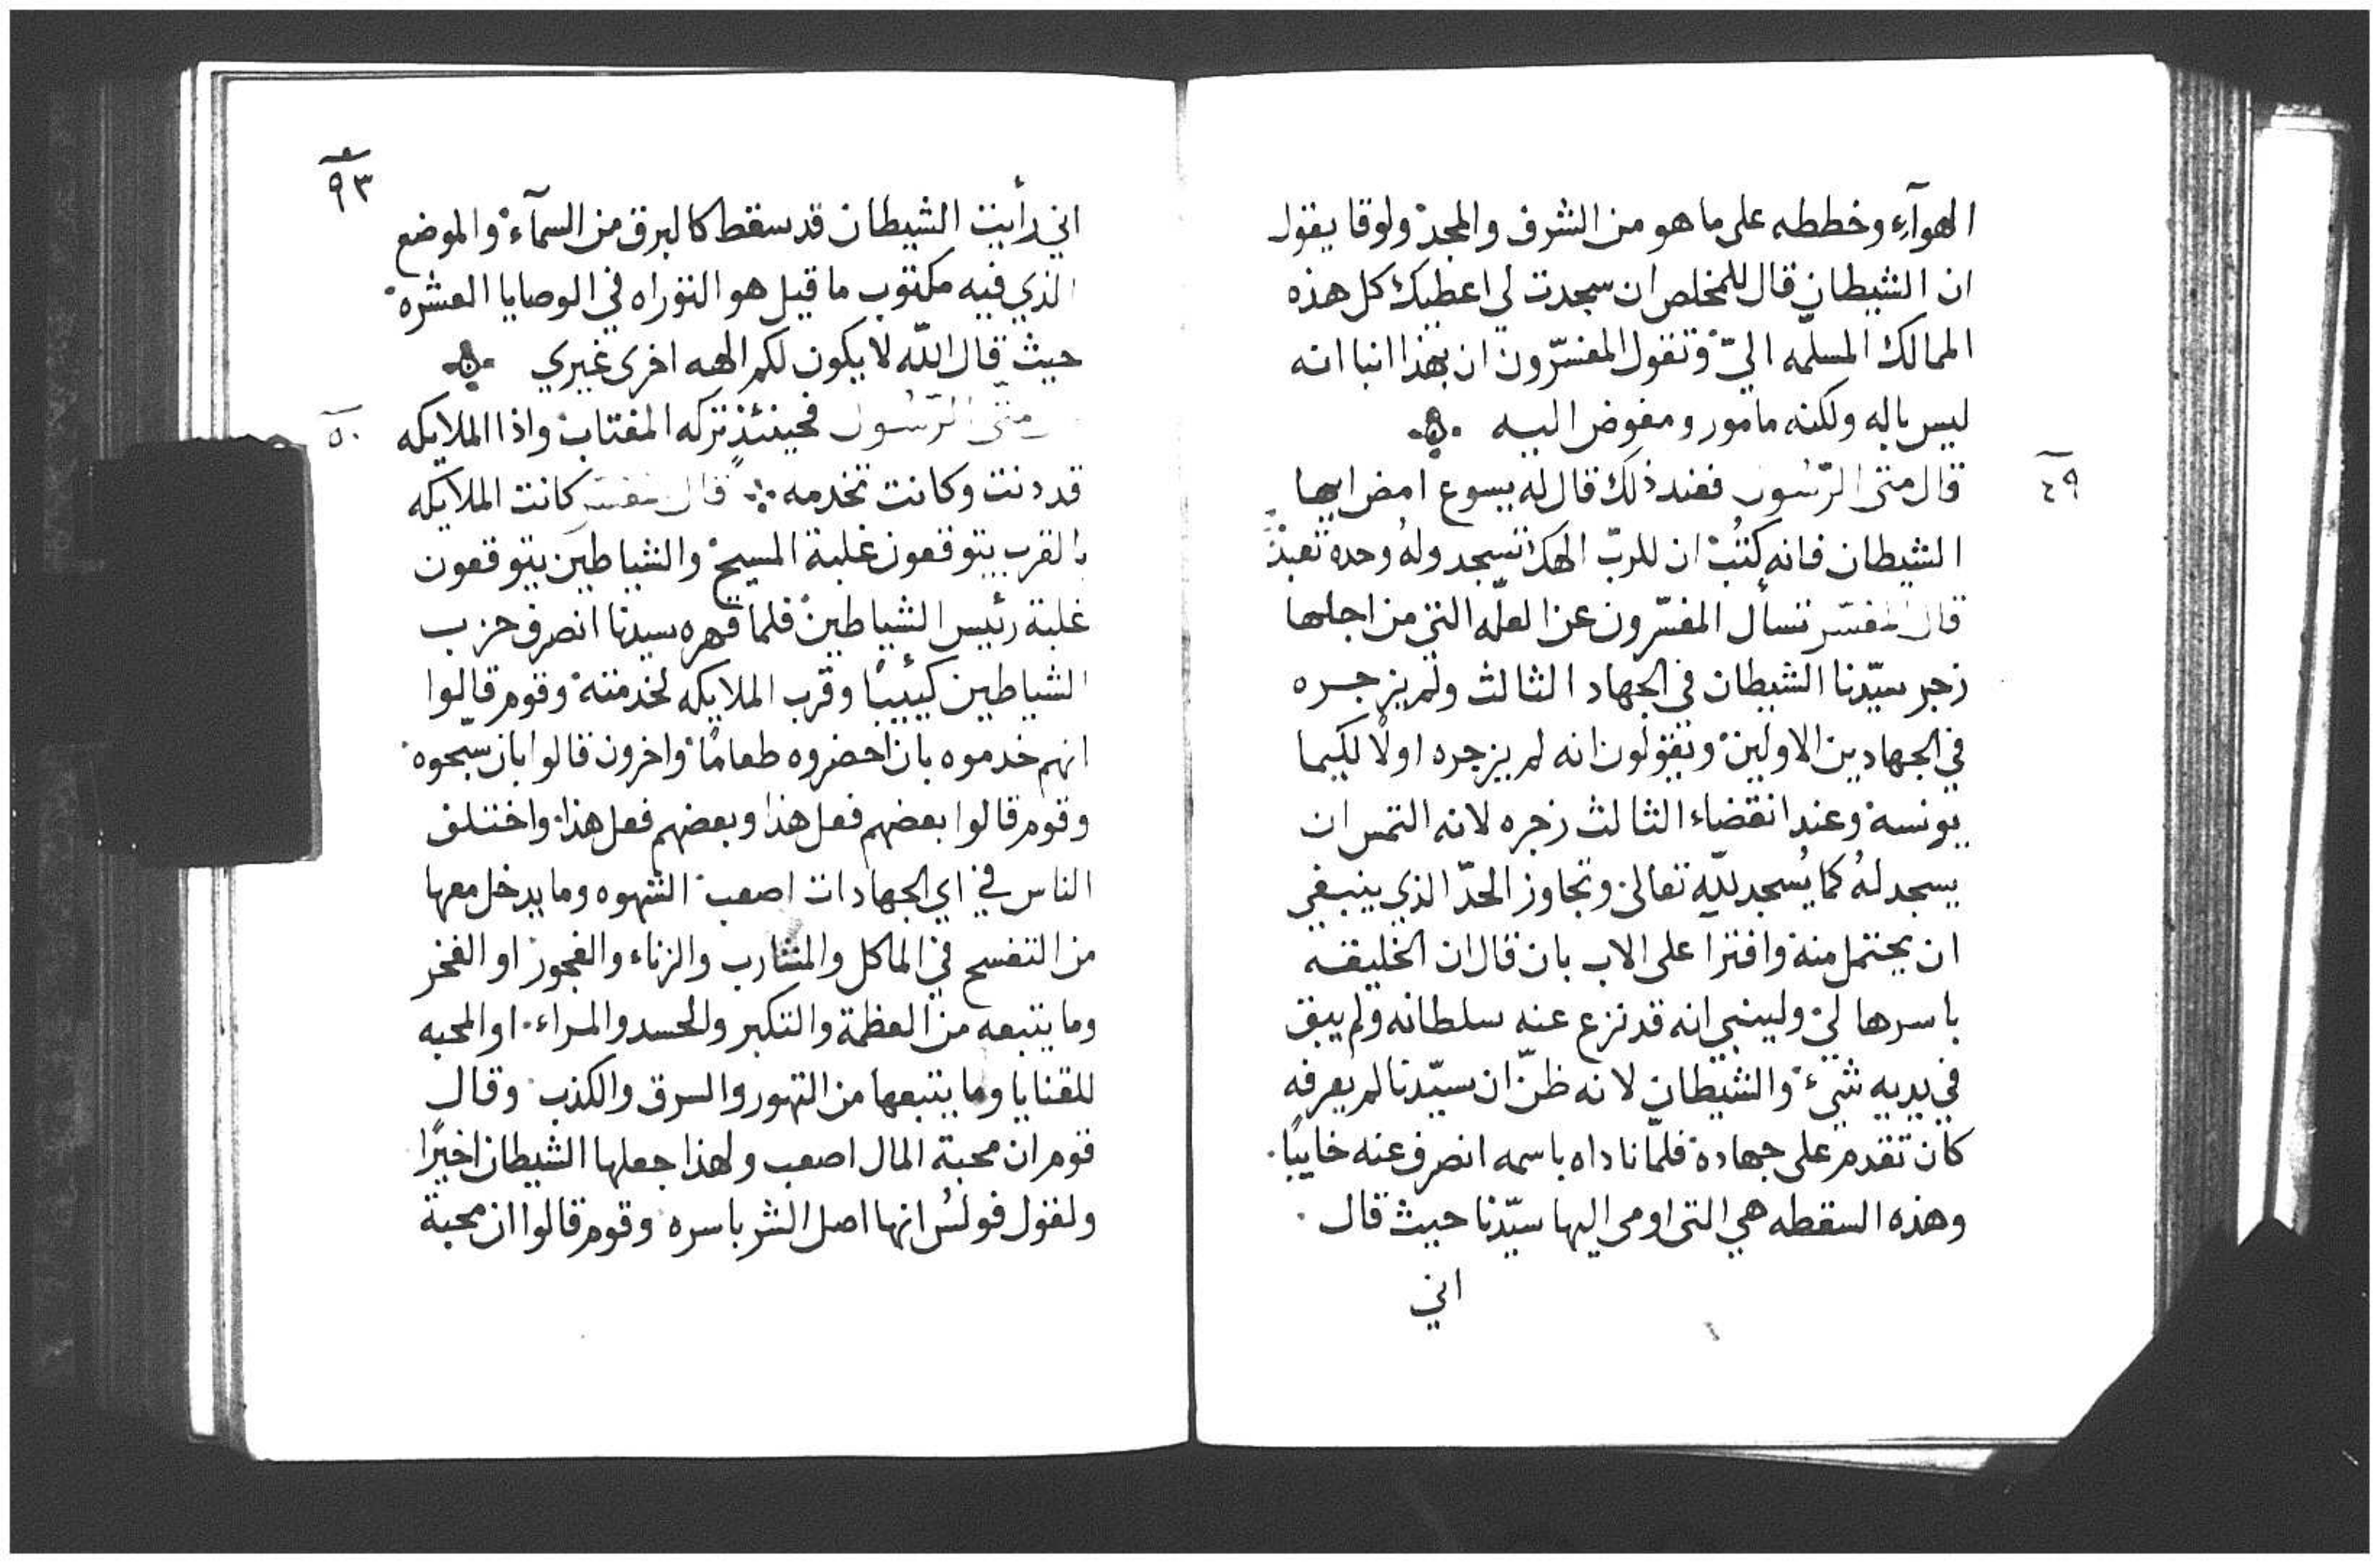 الهوآءِ وخططه على ما هو من الشرف والمجد ولوقا يقول
ان الشيطان قال للمخلص ان سجدت لي اعطيك كل هذه
الممالك المسلمه اليّ وتقول المفسّرون ان بهذا انبا انه
ليس باله ولكنه مامور ومفوض اليه
٤٩
قال متى الرّسُول فعند ذلك قال له يسوع امض ايها
الشيطان فانه كُتبْ ان للرب الهك تسجد ولهُ وحده تعبدْ
قال المفسّر تسأل المفسّرون عن العلّه التي من اجلها
زجر سيّدنا الشيطان في الجهاد الثالث ولم يزجره
في الجهادين الاولين وتقولون انه لم يزجره اولًا لكيما
يونسه وعند انقضاء الثالث زجره لانه التمس ان
يسجد لهُ كما يُسجد للّه تعالى وتجاوز الحدّ الذي ينبغي
ان يحتمل منه وافترا على الاب بان قال ان الخليقه
باسرها لي وليبني انه قد نزع عنه سلطانه ولم يبق
في يديه شيء والشيطان لانه ظنّ ان سيّدنا لم يعرفه
كان تقدم على جهاده فلمّا ناداه باسمه انصرف عنه خايبًا
وهذه السقطه هي التى اومى اليها سيّدنا حيث قال
اني
٩٣
اني رأيت الشيطان قد سقط كالبرق من السمآء والموضع
الذي فيه مكتوب ما قيل هو التوراه في الوصايا العشره
حيث قال اللّه لا يكون لكم الهه اخرى غيري
٥٠
متى الرّسُول فحينئذٍ تركه المغتاب واذا الملايكه
قد دنت وكانت تخدمه قال مفسر كانت الملايكه
بالقرب يتوقعون غلبة المسيح والشياطين يتوقعون
غلبة رئيس الشياطين فلما قهره سيدنا انصرف حزب
الشياطين كئيبًا وقرب الملايكه لخدمته وقوم قالوا
انهم خدموه بان احضروه طعامًا واخرون قالوا بان سبّحوه
وقوم قالوا بعضهم فعل هذا وبعضهم فعل هذا واختلف
الناس في اي الجهادات اصعب الشهوه وما يدخل معها
من التفسح في الماكل والمشارب والزناء والفجور او الفخر
وما يتبعه من العظمة والتكبر والحسد والمراء او المحبه
للقنايا وما يتبعها من التهور والسرق والكذب وقال
قوم ان محبة المال اصعب ولهذا جعلها الشيطان اخيرًا
ولقول فولسُ انها اصل الشر باسره وقوم قالوا ان محبة